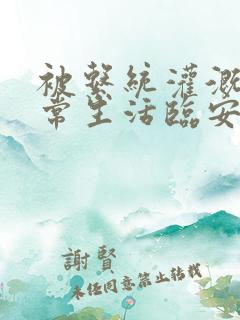 被繫統灌溉
常生活臨安
謝賢
未任同意禁止轉載